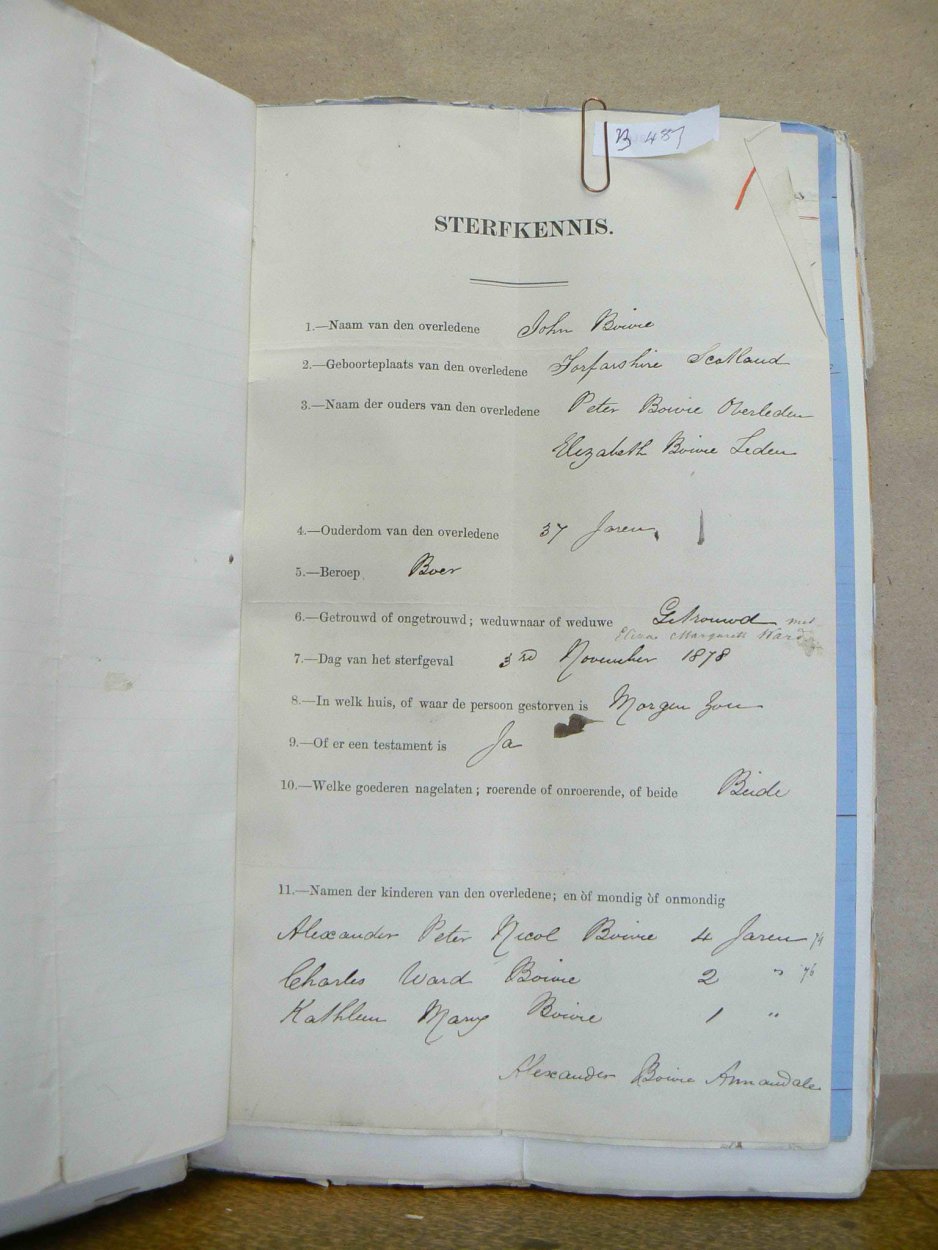 B 487
STERFKENNIS.
1.—Naam van den overledene John Bowie
2.—Geboorteplaats van den overledene Forfarshire Scotland
3.—Naam der ouders van den overledene Peter Bowie Overleden
Elizabeth Bowie Leden
4.—Ouderdom van den overledene 37 Jaren
5.—Beroep Boer
6.—Getrouwd of ongetrouwd; weduwnaar of weduwe Getrouwd met
Margarett Ward
7.—Dag van het sterfgeval 3rd November 1878
8.—In welk huis, of waar de persoon gestorven is Morgen Zon
9.—Of er een testament is Ja
10.—Welke goederen nagelaten; roerende of onroerende, of beide Beide
11.—Namen der kinderen van den overledene; en òf mondig òf onmondig
Alexander Peter Nicol Bowie 4 Jaren 74
Charles Ward Bowie 2 " 76
Kathleen Mary Bowie 1 "
Alexander Bowie Annandale